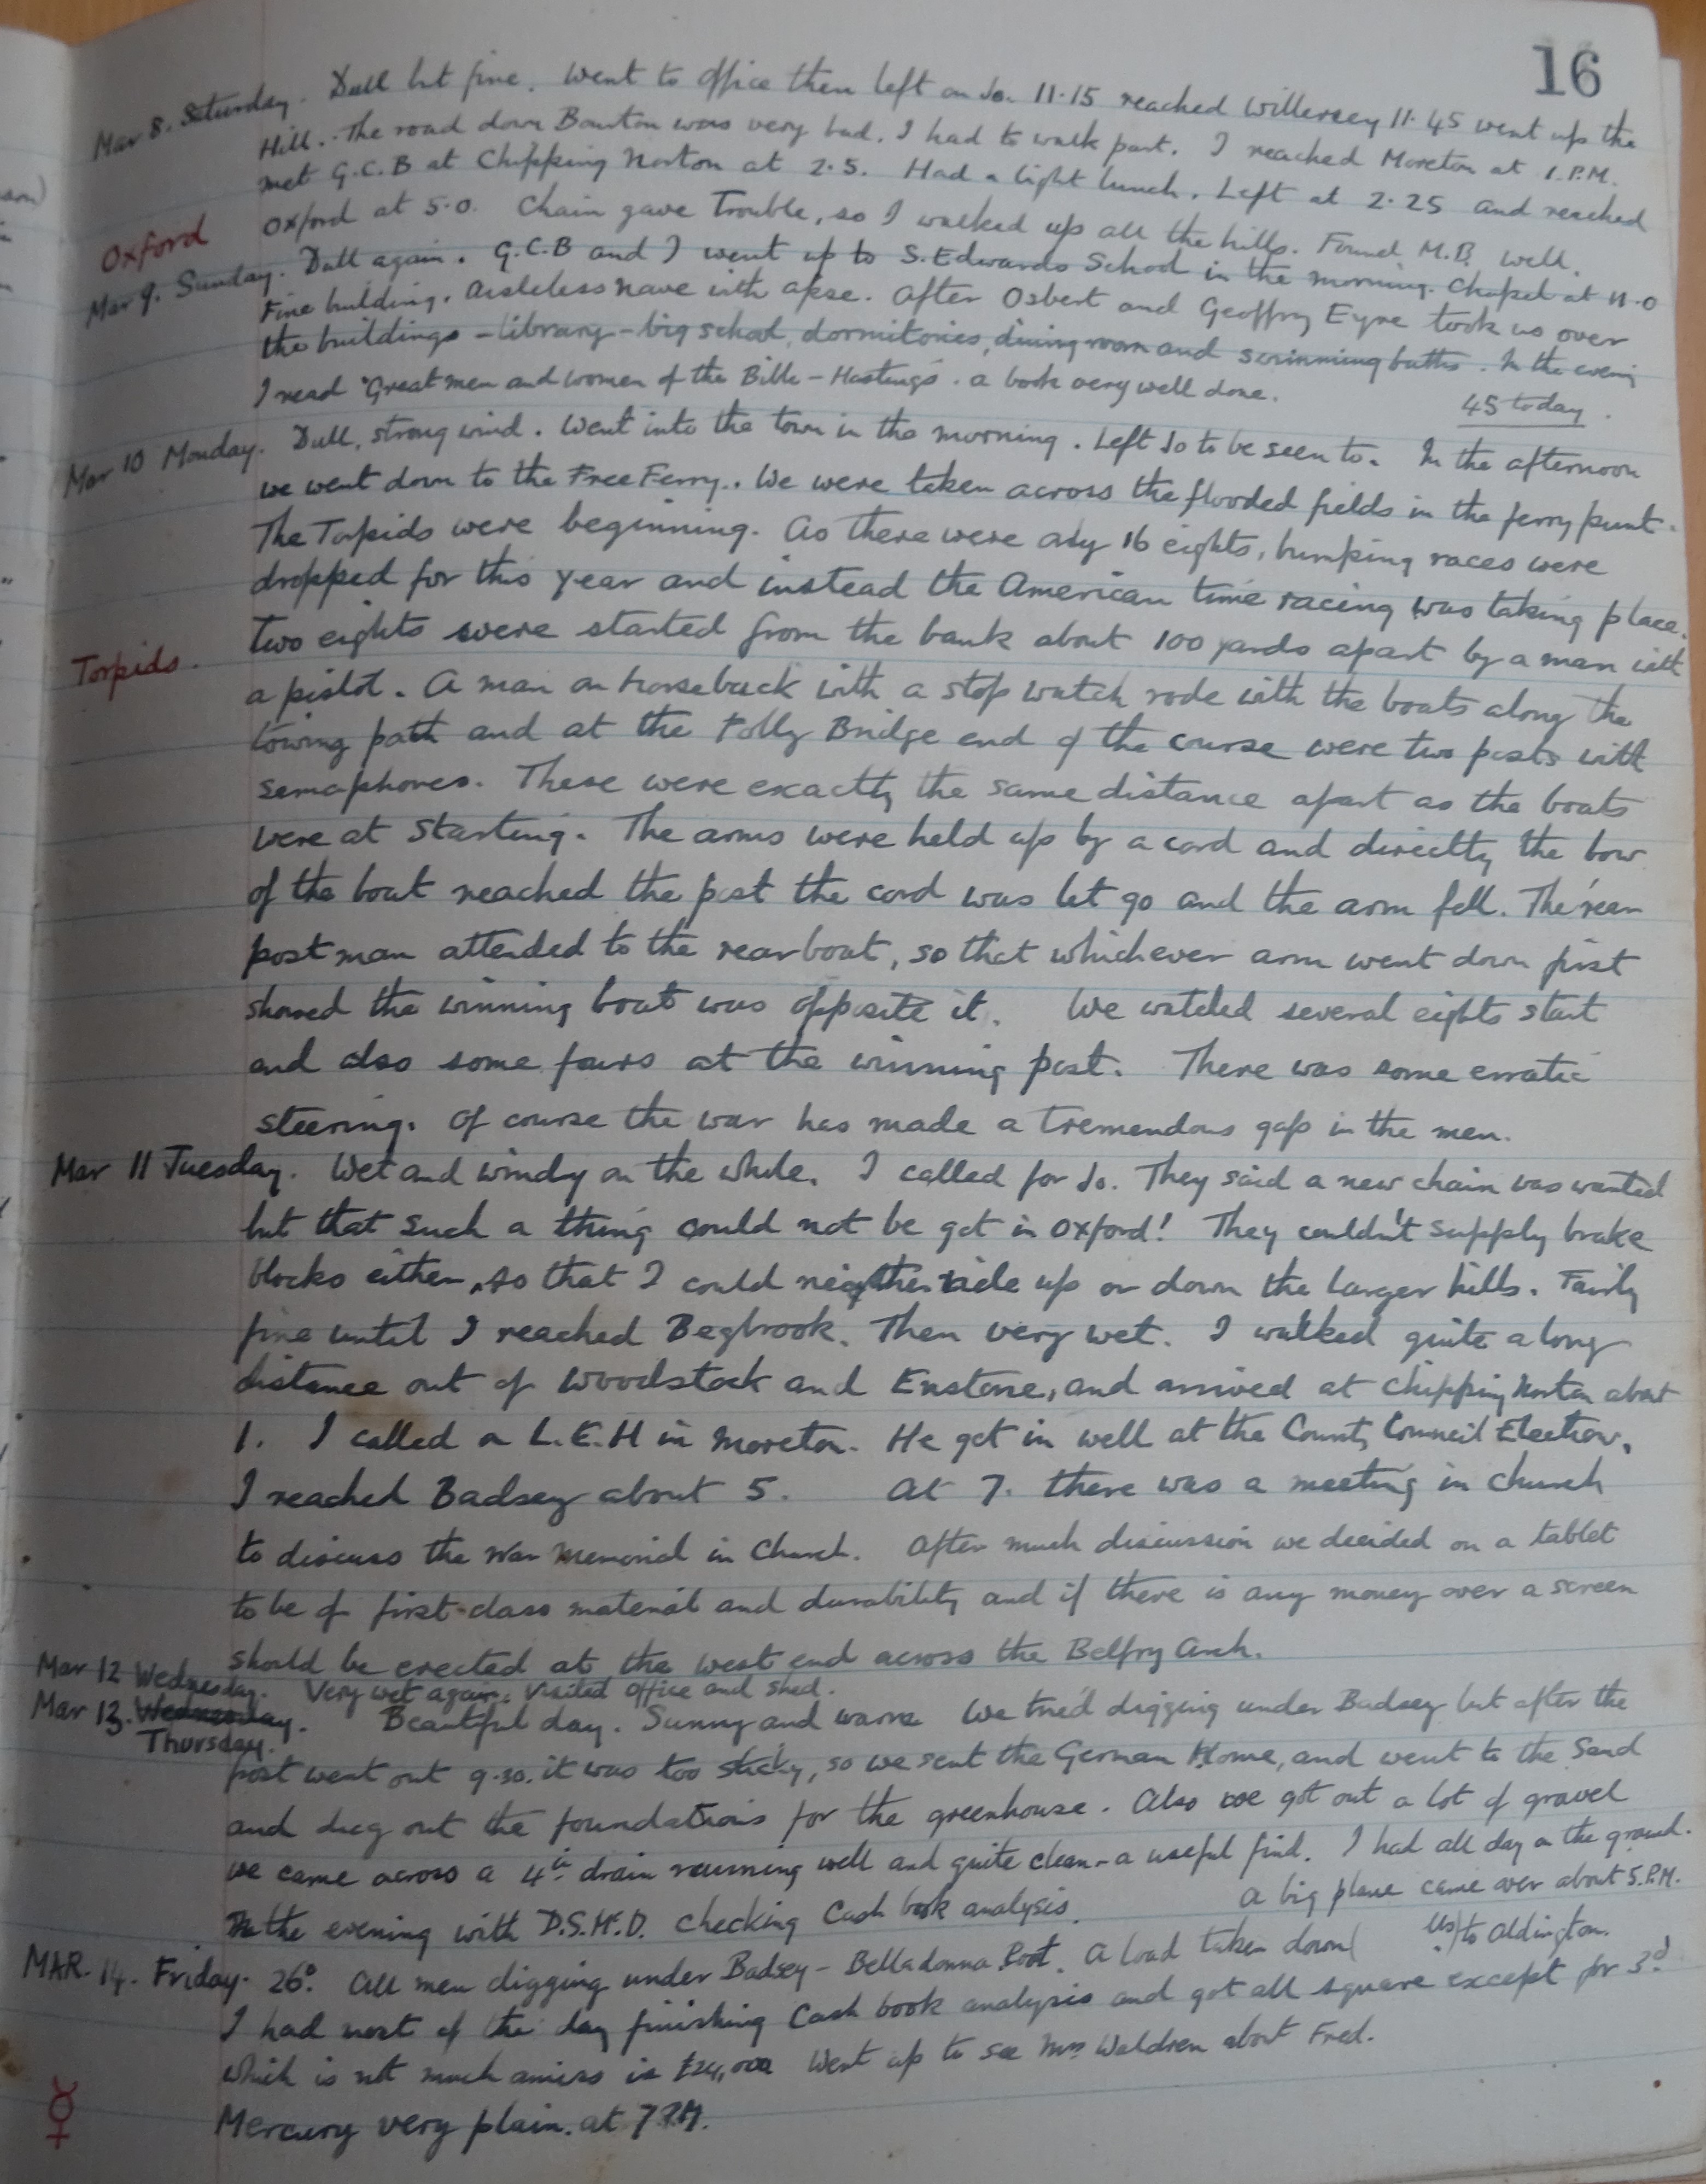 16
Mar 8. Saturday. Dull but fine. Went to office then left on Jo. 11.15 reached Willersey 11.45 went up the
Hill. The road down Bourton was very bad. I had to walk part. I reached Moreton at 1.P.M.
met G.C.B at Chipping Norton at 2.5. Had a light lunch. Left at 2.25 and reached
Oxford
Oxford at 5.0. Chain gave Trouble, so I walked up all the hills. Found M.B. well.
Mar 9. Sunday. Dull again. G.C.B and I went up to S.Edwards School in the morning. Chapel at 11.0
Fine building. Aisleless nave with apse. After Osbert and Geoffry Eyre took us over
the buildings - library - big school, dormitories, dining room and swimming baths. In the evening
I read "Great men and women of the Bible - Hastings". a book very well done.
45 today.
Mar 10 Monday. Dull, strong wind. Went into the town in the morning. Left Jo to be seen to. In the afternoon
we went down to the Free Ferry. We were taken across the flooded fields in the ferry punt.
The Torpids were beginning. As there were only 16 eights, bumping races were
dropped for this year and instead the American time racing was taking place.
Two eights were started from the bank about 100 yards apart by a man with
Torpids.
a pistol. A man on horseback with a stop watch rode with the boats along the
towing path and at the Folly Bridge end of the course were two posts with
semaphores. These were exactly the same distance apart as the boats
were at starting. The arms were held up by a cord and directly the bow
of the boat reached the post the cord was let go and the arm fell. The rear
post man attended to the rear boat, so that whichever arm went down first
showed the winning boat was opposite it. We watched several eights start
and also some pairs at the winning post. There was some erratic
steering. Of course the war has made a tremendous gap in the men.
Mar 11 Tuesday. Wet and windy on the whole. I called for Jo. They said a new chain was wanted
but that such a thing could not be got in Oxford! They couldn't supply brake
blocks either, so that I could neither ride up or down the larger hills. Fairly
fine until I reached Begbrook. Then very wet. I walked quite a long
distance out of Woodstock and Enstone, and arrived at Chipping Norton about
1. I called on L.E.H in Moreton. He got in well at the County Council Election.
I reached Badsey about 5. At 7. there was a meeting in church
to discuss the War Memorial in Church. After much discussion we decided on a tablet
to be of first class material and durability and if there is any money over a screen
should be erected at the west end across the Belfry Arch.
Mar 12 Wednesday. Very wet again. Visited office and shed.
Mar 13. Wednesday. Thursday. Beautiful day. Sunny and warm We tried digging under Badsey but after the
post went out 9.30. it was too sticky, so we sent the German Home, and went to the Sand
and dug out the foundations for the greenhouse. Also we got out a lot of gravel
we came across a 4in drain running well and quite clean - a useful find. I had all day on the ground.
In the evening with D.S.McD. checking Cash book analysis. A big plane came over about 5.P.M.
MAR. 14. Friday. 26°. All men digging under Badsey - Belladonna Root. A load taken down up to Aldington.
I had most of the day finishing Cash book analysis and got all square except for 3d
which is not much amiss in £24,000 Went up to see Mrs Waldren about Fred.
☿
Mercury very plain. at 7 P.M.